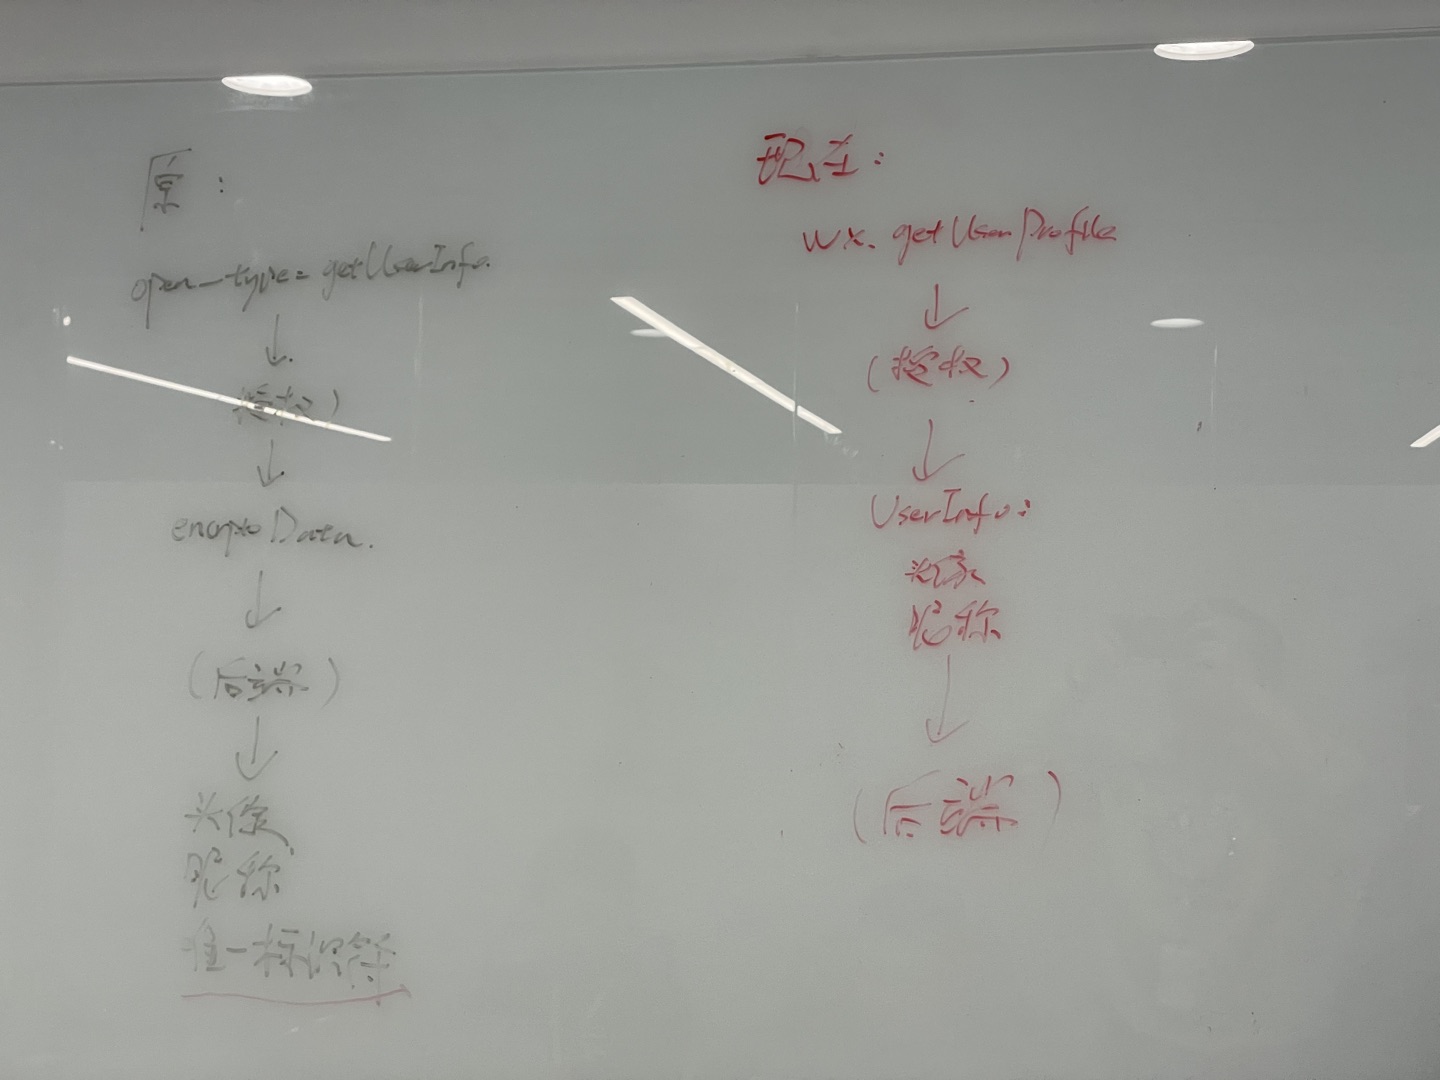 原：
open-type=getUserInfo.
↓
授权）
↓
encryptoData.
↓
（后端）
↓
头像
昵称
唯一标识符
现在：
wx.getUserProfile
↓
（授权）
↓
UserInfo：
头像
昵称
↓
（后端）